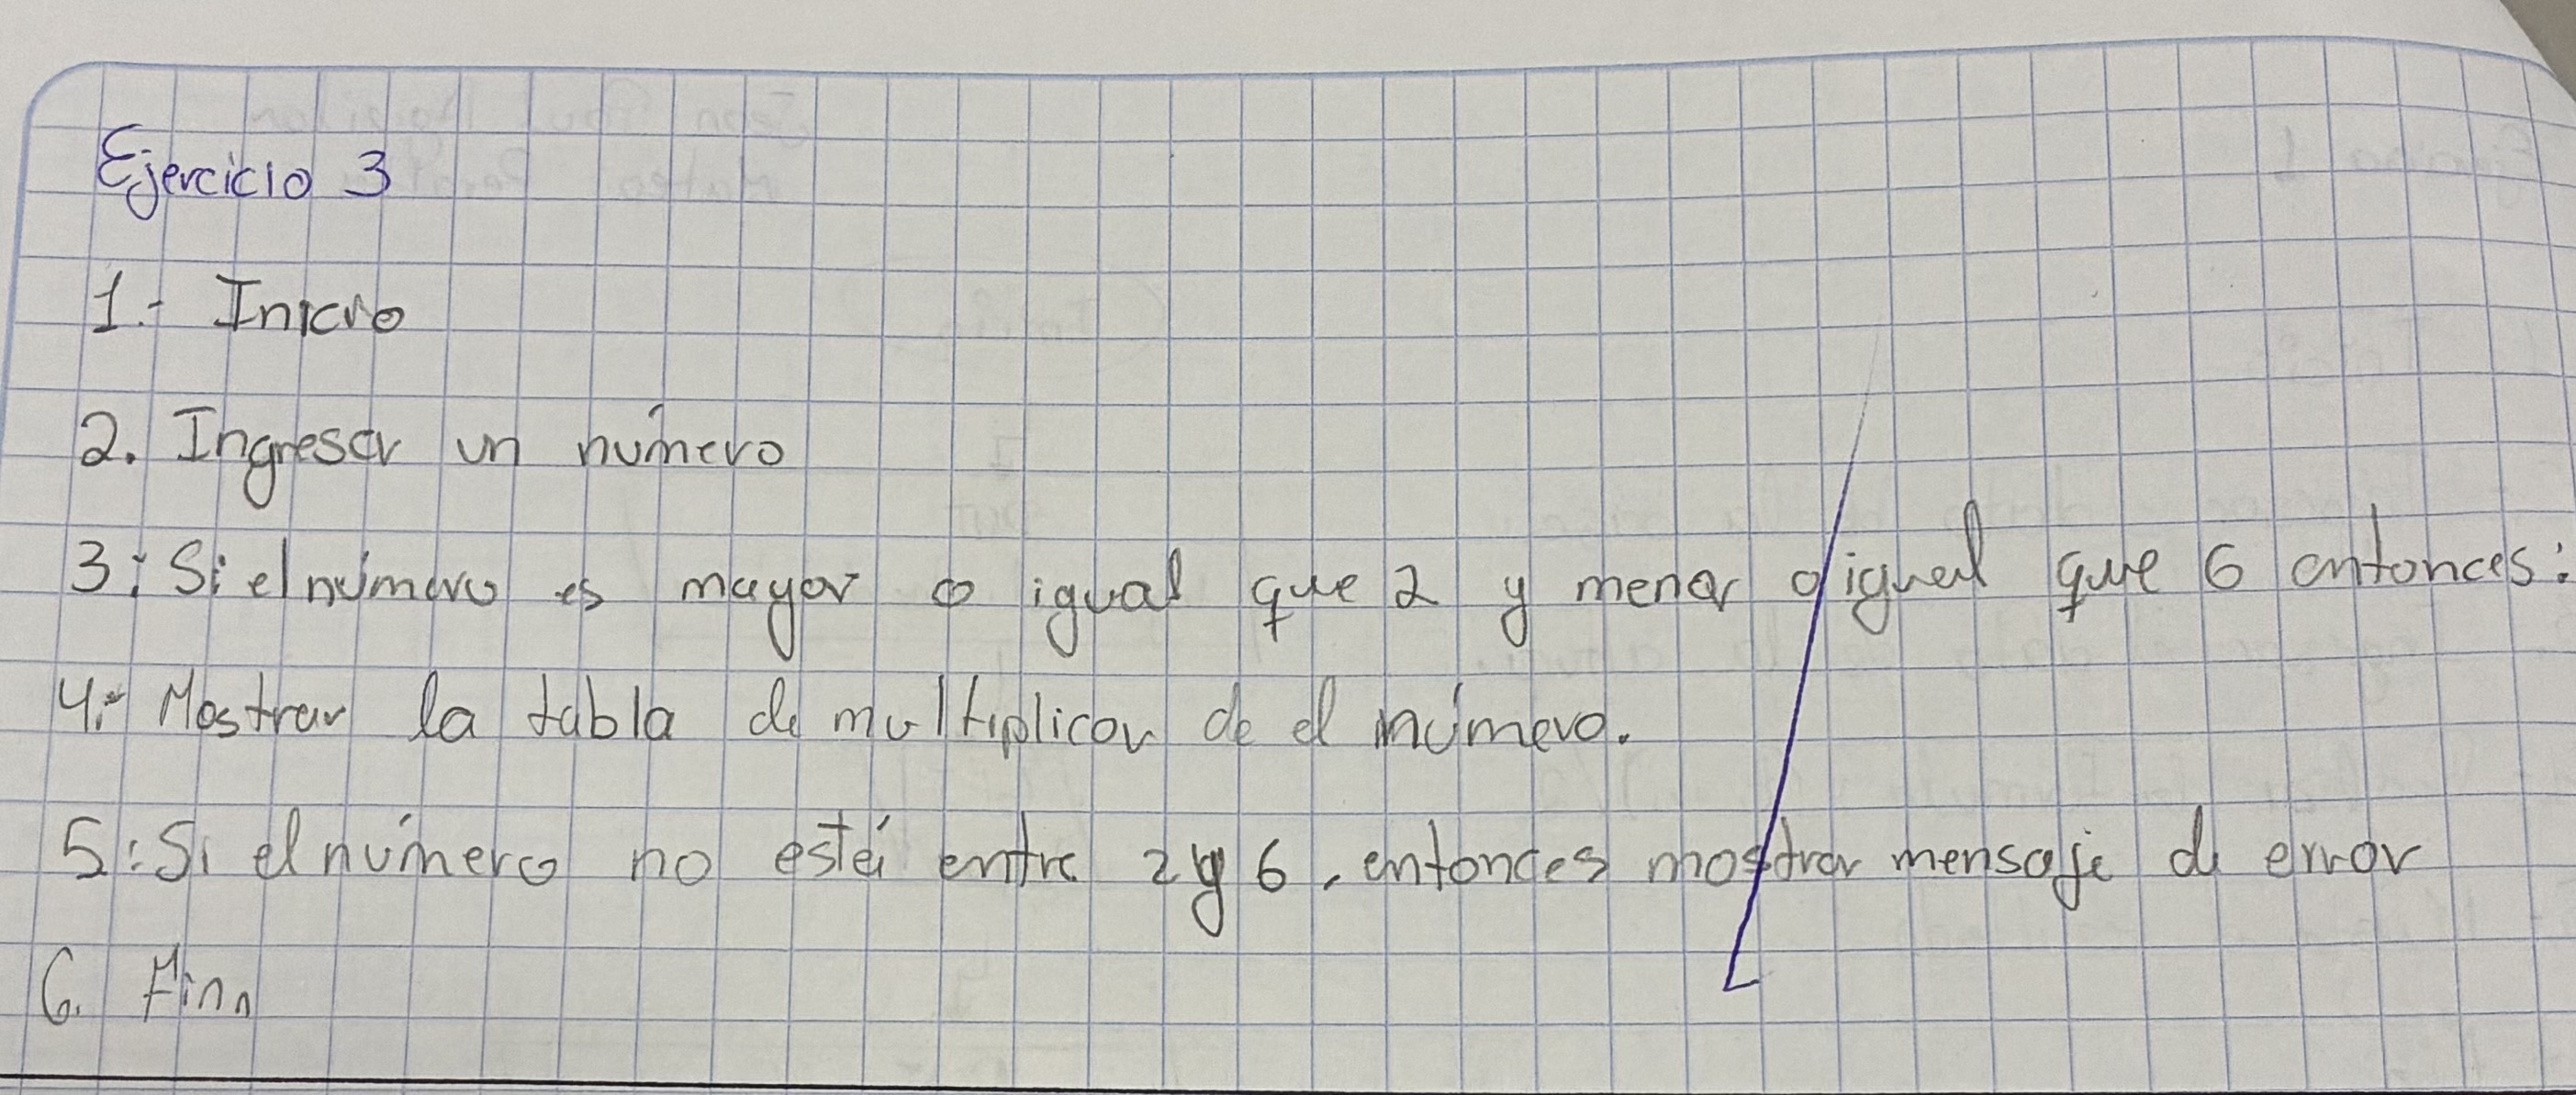 Ejercicio 3
1.- Inicio
2. Ingresar un número
3.- Si el número es mayor o igual que 2 y menor o igual que 6 entonces:
4.- Mostrar la tabla de multiplicar de el número.
5.- Si el número no está entre 2 y 6, entonces mostrar mensaje de error
6. Finn